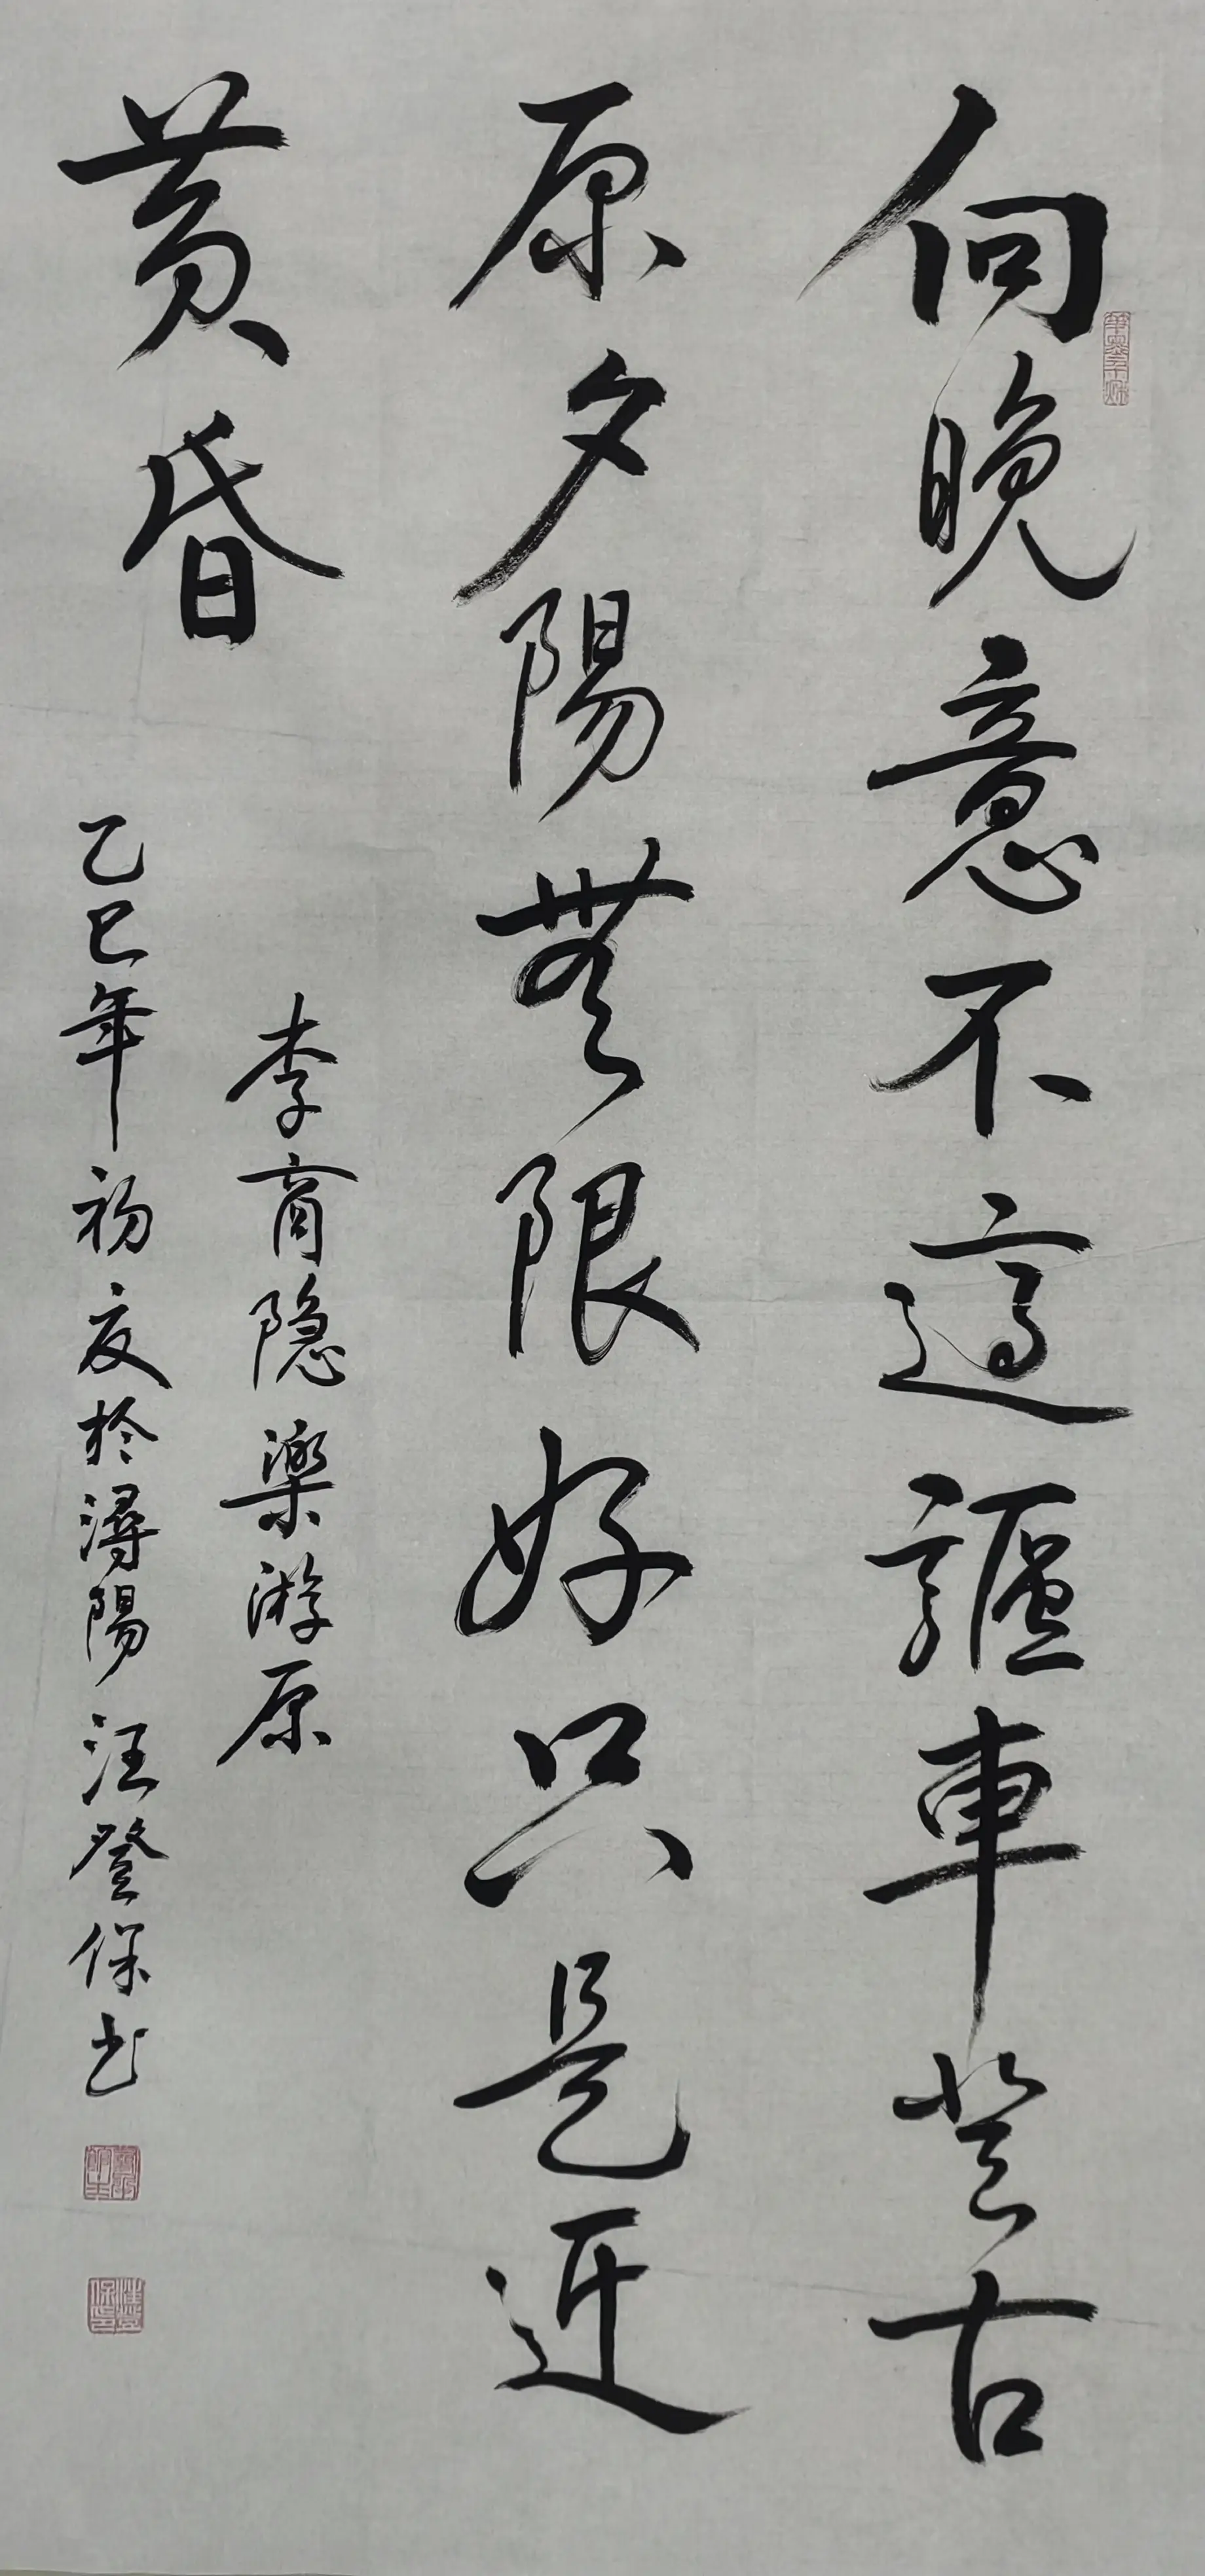 向晚意不適驅車登古
原夕陽無限好只是近
黄昏
李商隐樂游原
乙巳年初夏於潯陽汪登保书